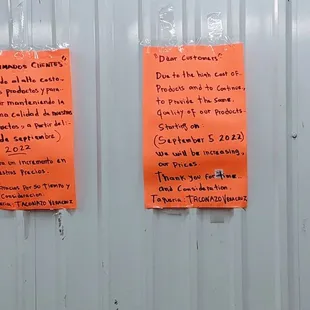 IMADOS CLIENTES"
do al alto costo
s productos y para
r manteniendo la
a calidad de nuestros
ductos, a partir del:
de Septiembre)
2022
un incremento en
stros Precios.
Gracias Por su Tiempo y
Consideración
TACONAZO VERACRUZ
"Dear Customers"
Due to the high Cost of
Products and to Continue,
to Provide the Same.
Quality of our Products.
Starting on
(September 5 2022)
We will be increasing,
our Prices.
Thank you For time
and Consideration.
Taqueria: TACONAZO VERACRUZ